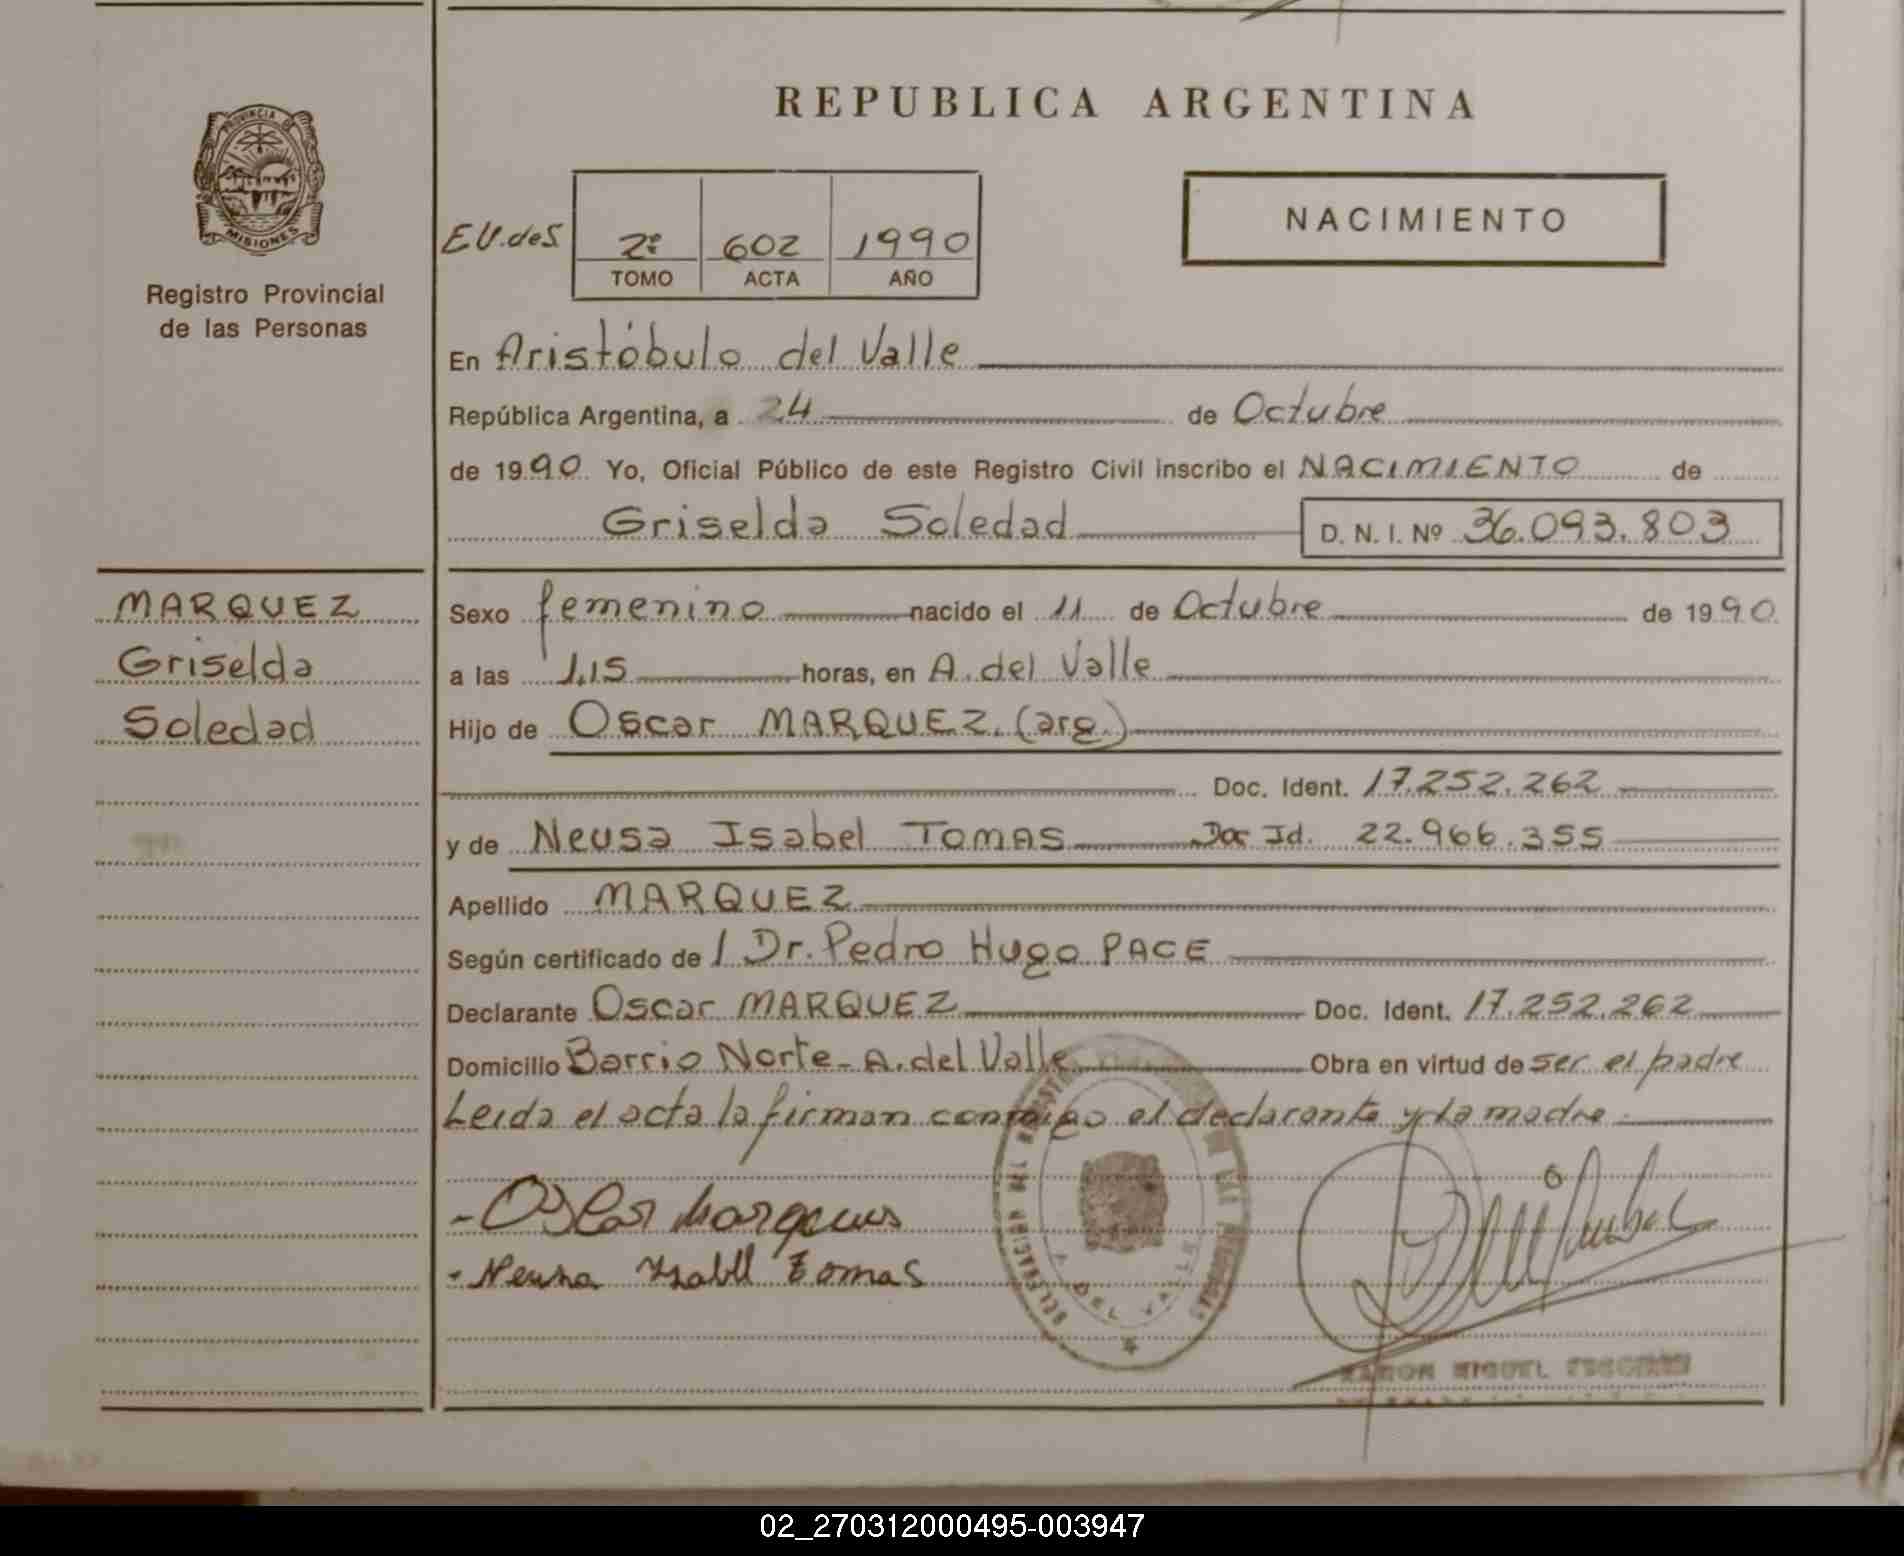 REPUBLICA ARGENTINA
PROVINCIA DE
MISIONES
Registro Provincial
de las Personas
NACIMIENTO
2º 602 1990
TOMO ACTA AÑO
En Aristóbulo del Valle
República Argentina, a 24 de Octubre
de 1990 Yo, Oficial Público de este Registro Civil inscribo el NACIMIENTO de
Griselda Soledad D. N. I. Nº 36.093.803
MARQUEZ
Griselda
Soledad
Sexo femenino nacido el 11 de Octubre de 1990
a las 1,15 horas, en A. del Valle
Hijo de Oscar MARQUEZ. (arg.)
Doc. Ident. 17.252.262
y de Neusa Isabel TOMAS Doc Id. 22.966.355
Apellido MARQUEZ
Según certificado de l Dr. Pedro Hugo PACE
Declarante Oscar MARQUEZ Doc. Ident. 17.252.262
Domicilio Barrio Norte - A. del Valle Obra en virtud de ser el padre
Leida el acta la firman conmigo el declarante y la madre
- Oscar Marques
- Neusa Ysabll Tomas
A. DEL VALLE
RAMON MIGUEL
02_270312000495-003947